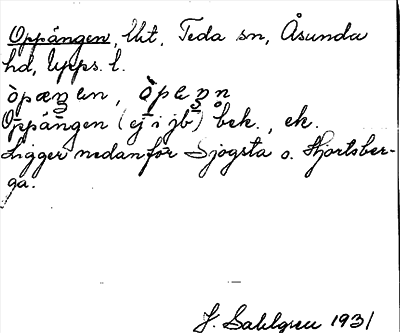 Oppängen, Uht, Teda sn, Åsunda
hd, Upps. l.
Oppängen (ej i jb) bek., ek.
Ligger nedanför Sjögsta o. Hjortsber-
ga.
J. Sahlgren 1931